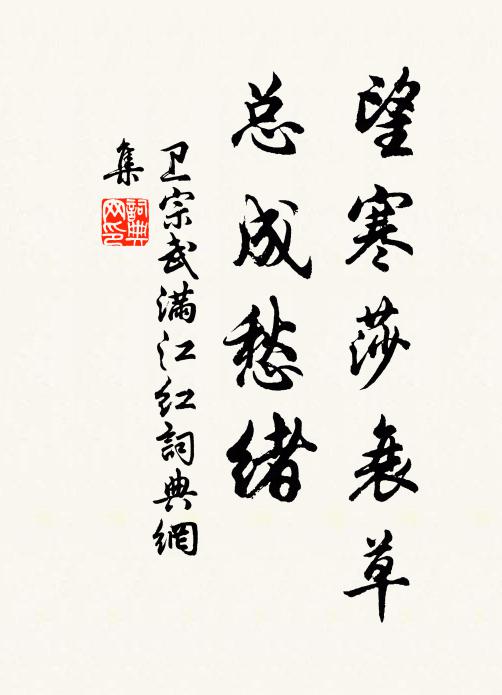 望寒莎衰草
总成愁绪
卫宗武满江红词典網
集
詞典
网印